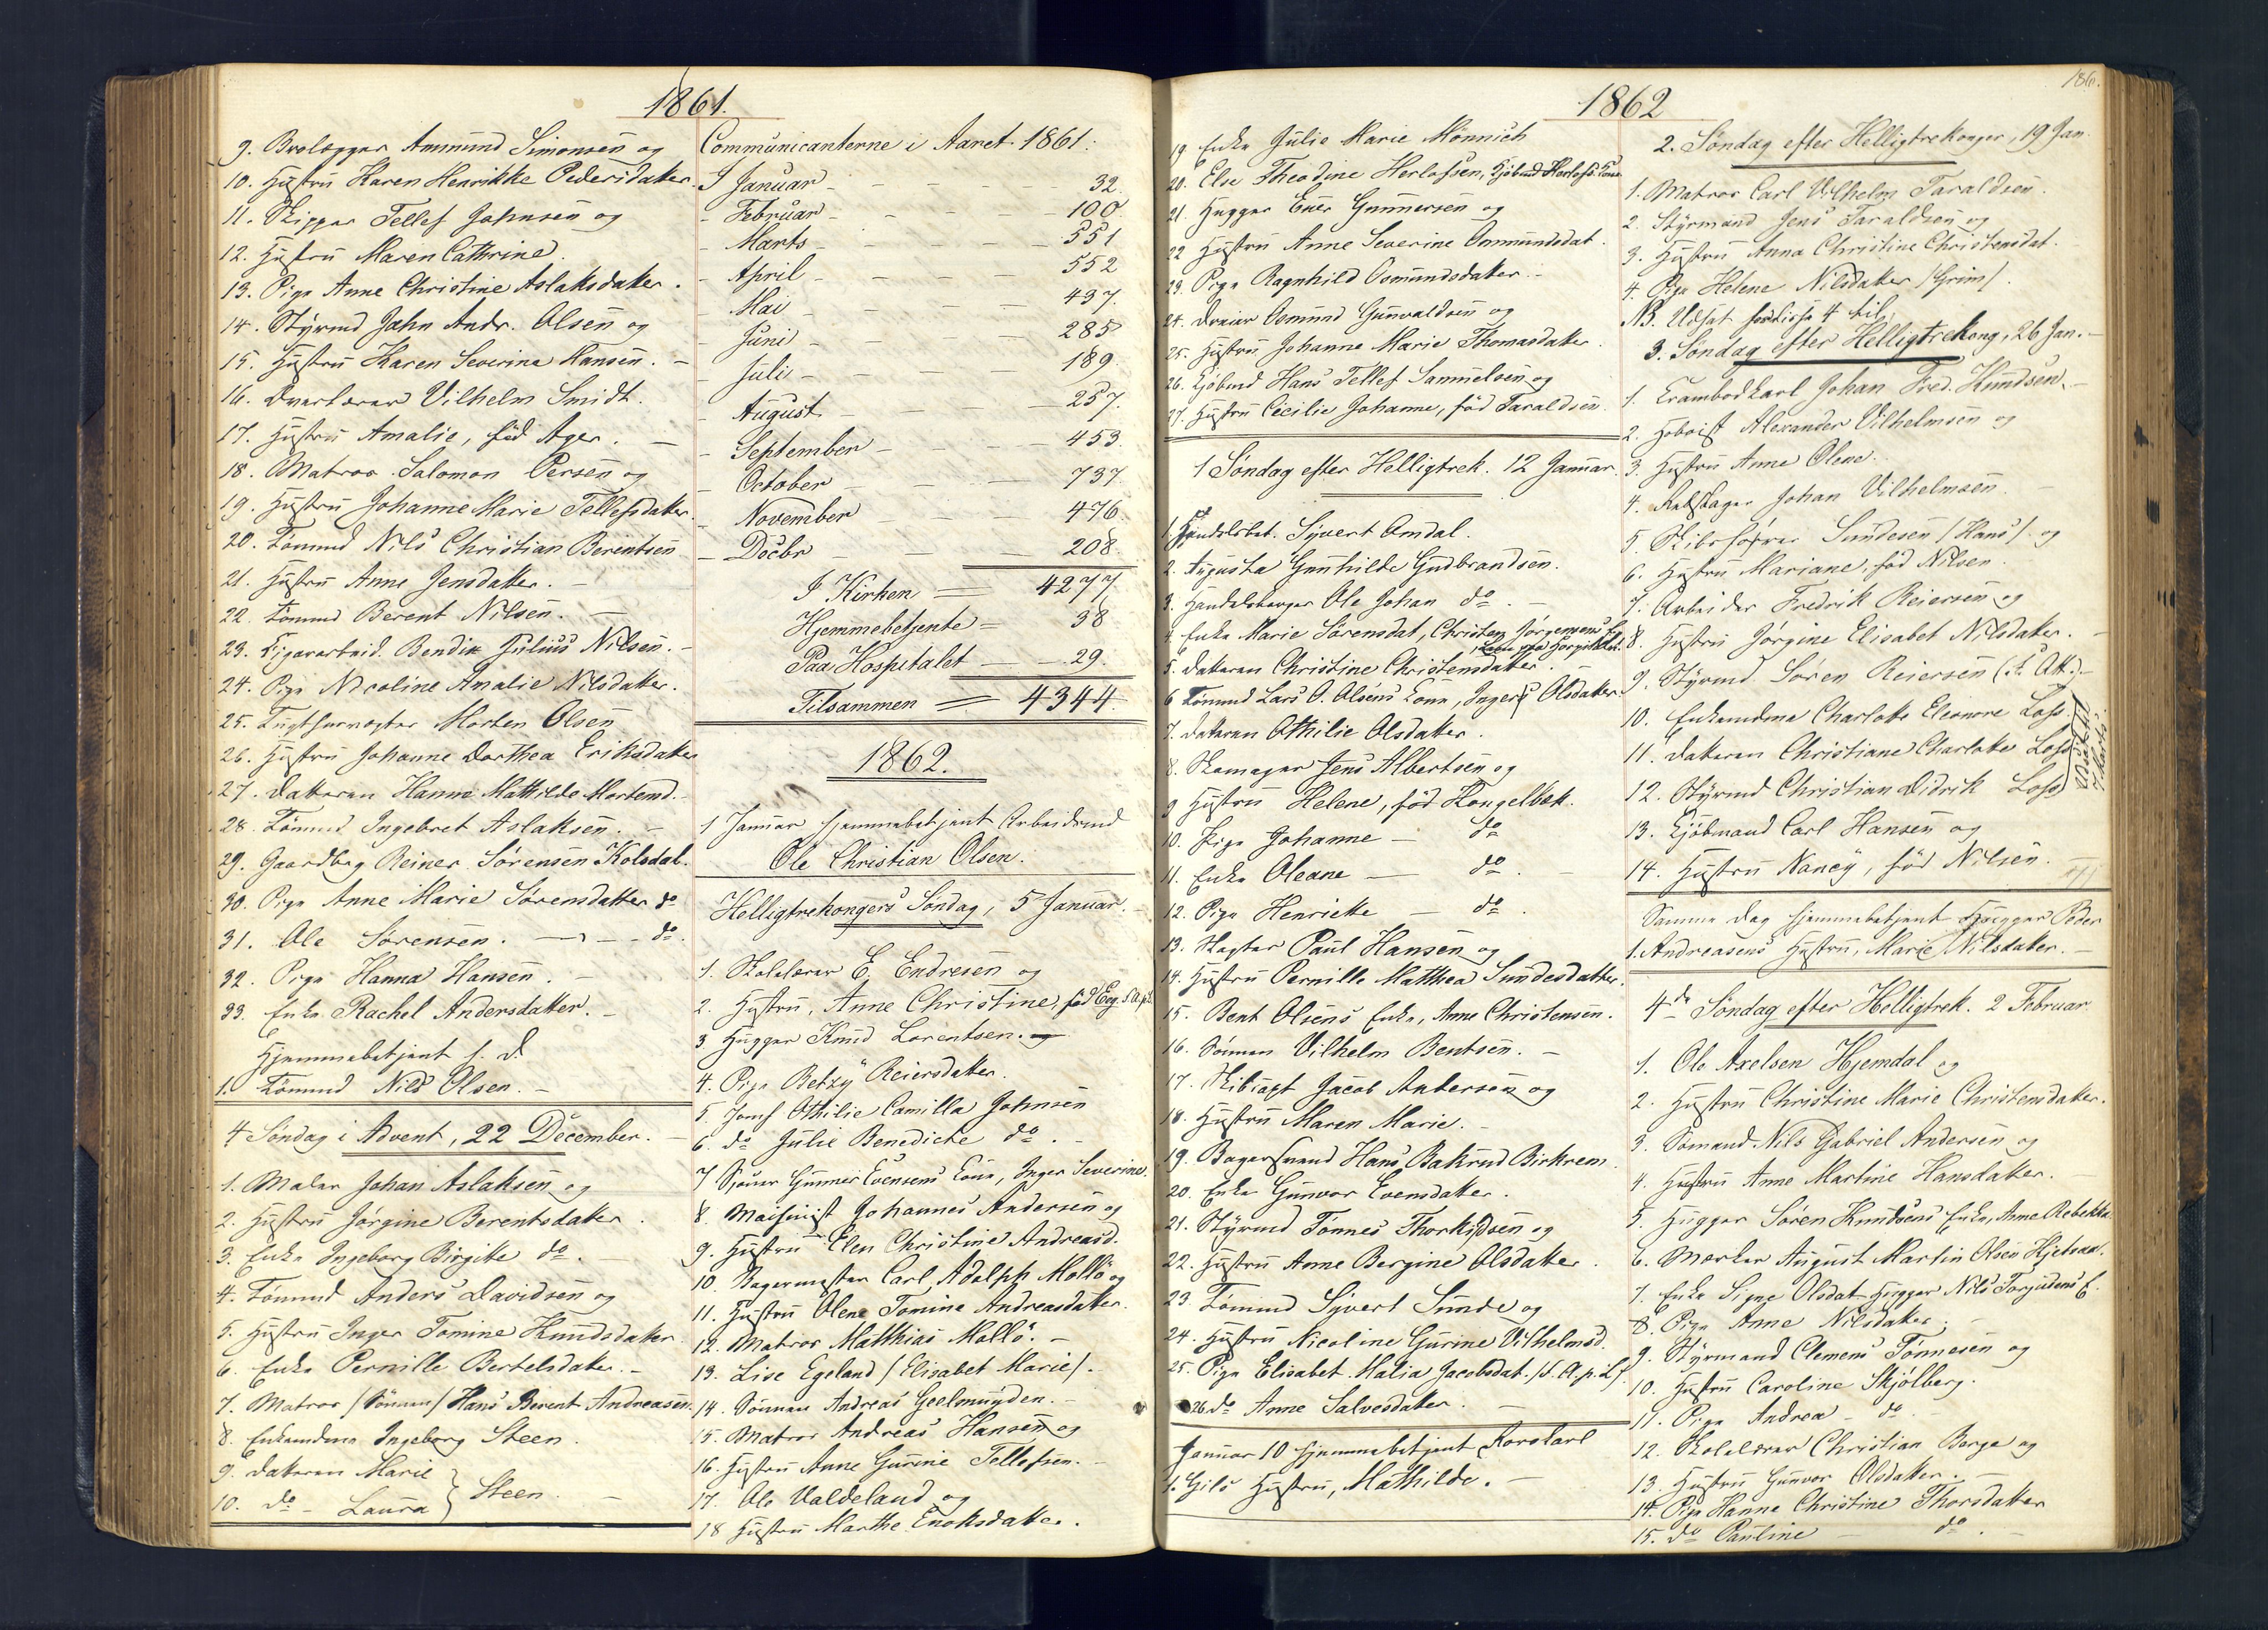 1861.
9. Brolægger Ammund Simonsen og
10. Hustru Karen Henrikke Pedersdatter.
11. Skipper Tellef Johnsen og
12. Hustru Maren Cathrine.
13. Pige Anne Christine Aslaksdatter.
14. Styrmd John Andr. Olsen og
15. Hustru Karen Severine Hansen. -
16. Overlærer Vilhelm Smidt.
17. Hustru Amalie, fød Ager. -
18. Matros Salomon Persen og
19. Hustru Johanne Marie Tellefsdatter.
20. Tømmd Nils Christian Berintsen
21. Hustru Anne Jensdatter. -
22. Tømmd Berent Nilsen. -
23. Cigararbeid. Bendix Julius Nilsen. -
24. Pige Nicoline Amalie Nilsdatter.
25. Tugthusvogter Morten Olsen
26. Hustru Johanne Dorthea Eriksdatter
27. Datteren Hanne Mathilde Mortensd.
28. Tømmd Ingebret Aslaksen. -
29. Gaardbrg Reiner Sørensen Kolsdal.
30. Pige Anne Marie Sørensdatter do
31. Ole Sørensen. - - - do.
32. Pige Hanna Hansen. -
33. Enke Rachel Andersdatter. -
Hjemmebetjent s. D.
1. Tømmd Nils Olsen. -
4 Søndag i Advent, 22 December. -
1. Maler Johan Aslaksen og
2. Hustru Jørgine Berentsdatter.
3. Enke Ingeborg Birgitte do.
4. Tømmd Anders Davidsen og
5. Hustru Inger Tomine Knudsdatter.
6. Enke Pernille Bertelsdatter. -
7. Matros /Sønnen/ Hans Berent Andreasen.
8. Enkemadme Ingeborg Steen.
9. Datteren Marie
10. do - Laura } Steen. -
Communicanterne i Aaret 1861:
I Januar - 32.
- Februar - 100.
- Marts - 551
- April - 552
- Mai - 437.
- Juni - 285
- Juli - 189.
- August - 257.
- September - 453.
- October - 737.
- November - 476.
- Decbr - 208.
I Kirken = 4277.
Hjemmebetjente = 38
Paa Hospitalet - 29.
Tilsammen = 4344.
1862.
1 Januar hjemmebetjent Arbeidsmd
Ole Christian Olsen.
Helligtrekongers Søndag, 5 Januar. -
1. Skolelærer E. Endresen og
2. Hustru, Anne Christine, fød Eeg.
3 Hugger Knud Lorentsen. og
4. Pige Betzy Reiersdatter.
5. Jomf Othilie Camilla Johnsen
6. do Julie Benedicte do. -
7 Sjauer Gunner Evensens Kone, Inger Severine.
8. Maschinist Johannes Andersen og
9. Hustru Elen Christine Andreasd.
10. Bagermester Carl Adolph Mollø og
11. Hustru Olene Tomine Andreasdatter.
12. Matros Matthias Mollø. -
13. Lise Egeland /Elisabet Marie/.
14. Sønnen Andreas Geelmuyden. -
15. Matros Andreas Hansen og
16. Hustru Anne Gurine Tellefsen. -
17. Ole Valdeland og
18 Hustru Marthe Enoksdatter.
1862
186.
19 Enke Julie Marie Mønnich
20. Else Theodine Herlofsen, Kjøbmd Herlofs. Kone
21. Hugger Ener Gunnersen og
22 Hustru Anne Severine Ommundsdat.
23. Pige Ragnhild Osmundsdatter. -
24. Dreier Osmund Gunvaldsen og
25. Hustru Johanne Marie Thomasdatter.
26. Kjøbmd Hans Tellef Samuelsen og
27. Hustru Cecilie Johanne, fød Taraldsen.
1 Søndag efter Helligtrek. 12 Januar.
1. Handelsbet. Syvert Omdal.
2. Augusta Gunhilde Gudbrandsen.
3. Handelsborger Ole Johan do. -
4. Enke Marie Sørensdat, Christen Jørgensens E.
5. Datteren Christine Christensdatter.
6 Tømmd Lars O. Olsens Kone, Inger Olsdatter.
7. Datteren Othilie Olsdatter.
8. Skomager Jens Albertsen og
9 Hustru Helene, fød Kongelbek.
10. Pige Johanne - do
11. Enke Oleane - do. -
12. Pige Henriette - do.
13. Slagter Paul Hansen og
14. Hustru Pernille Matthea Sundesdatter.
15. Bent Olsens Enke, Anne Christensen.
16. Sønnen Vilhelm Bentsen. -
17. Skibscapt Jacob Andersen og
18. Hustru Maren Marie. -
19. Bagersvend Hans Bakrud Birkrem.
20. Enke Gunvor Evensdatter.
21. Styrmd Tønnes Thorkildsen og
22. Hustru Anne Bergine Olsdatter.
23. Tømmd Syvert Sunde og
24. Hustru Nicoline Gurine Vilhelmsd.
25. Pige Elisabet Malia Jacobsdat.
26. do Anne Salvesdatter. -
Januar 10 hjemmebetjent
1. Gils Hustru, Mathilde. -
2. Søndag efter Helligtrekonger, 19 Jan.
1. Matros Carl Vilhelm Taraldsen.
2. Styrmand Jens Taraldsen og
3. Hustru Anna Christine Christensdat.
4. Pige Helene Nilsdatter /Grim/.
NB. Udsat 4 til,
3. Søndag efter Helligtrekong, 26 Jan. -
1. Krambodkarl Johan Fred. Knudsen. -
2. Hoboist Alexander Vilhelmsen og
3. Hustru Anne Olene.
4. Rebslager Johan Vilhelmsen. -
5. Skibsfører Sundesen /Hans/ og
6. Hustru Mariane, fød Nilsen.
7. Arbeider Fredrik Reiersen og
8. Hustru Jørgine Elisabet Nilsdatter. -
9. Styrmd Søren Reiersen
10. Enkemadme Charlotte Eleonore Loss.
11. Datteren Christiane Charlotte Loss
12. Styrmd Christian Didrik Loss
Udsat til
7 Marts.
13. Kjøbmand Carl Hansen og
14. Hustru Nancy, fød Nilsen. -
Samme Dag hjemmebetjent Hugger Peder
1. Andreasens Hustru, Marie Nilsdatter. -
4de Søndag efter Helligtrek. 2 Februar
1. Ole Axelsen Hjemdal og
2. Hustru Christine Marie Christensdatter.
3. Sømand Nils Gabriel Andersen og
4. Hustru Anne Martine Hansdatter.
5. Hugger Søren Knudsens Enke, Anne Rebekka.
6. Mærker August Martin Olsen
7. Enke Signe Olsdat Hugger Nils Torjusens E.
8. Pige Anne Nilsdatter. -
9. Styrmand Clemens Tønnesen og
10. Hustru Caroline Skjølberg.
11. Pige Andrea - do -
12. Skolelærer Christian Berge og
13. Hustru Gunvor Olsdatter. -
14. Pige Hanne Christine Thorsdatter
15. do Pauline - do. -